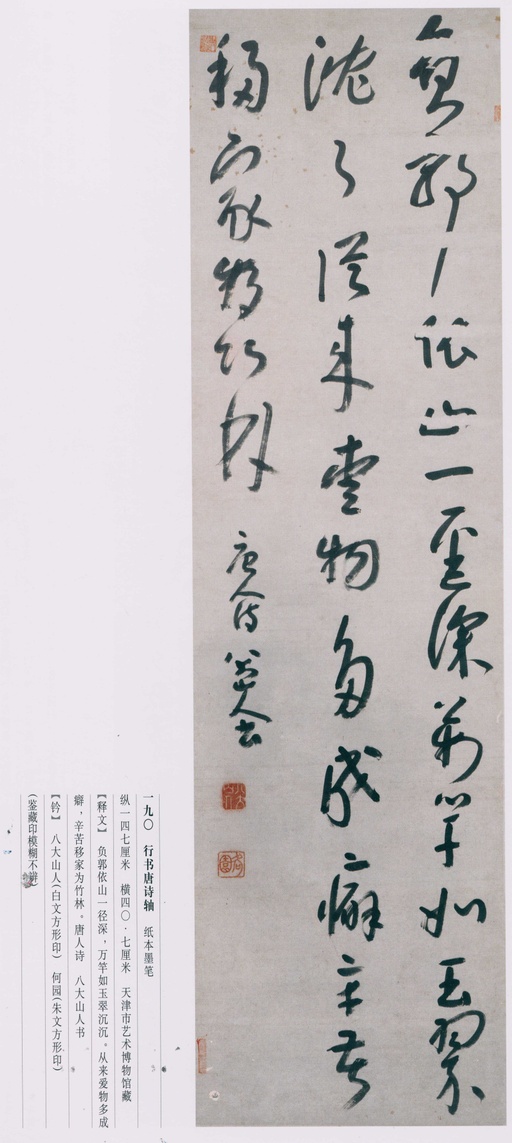 负郭依山一径深万竿如玉翠
沈沈从来爱物多成癖辛苦
移家为竹林 唐人诗 八大山人书
八大山人
何园
一九〇 行书唐诗轴 纸本墨笔
纵一四七厘米 横四〇·七厘米 天津市艺术博物馆藏
【释文】 负郭依山一径深，万竿如玉翠沉沉。从来爱物多成
癖，辛苦移家为竹林。唐人诗 八大山人书
【钤】 八大山人(白文方形印) 何园(朱文方形印)
(鉴藏印模糊不辨)